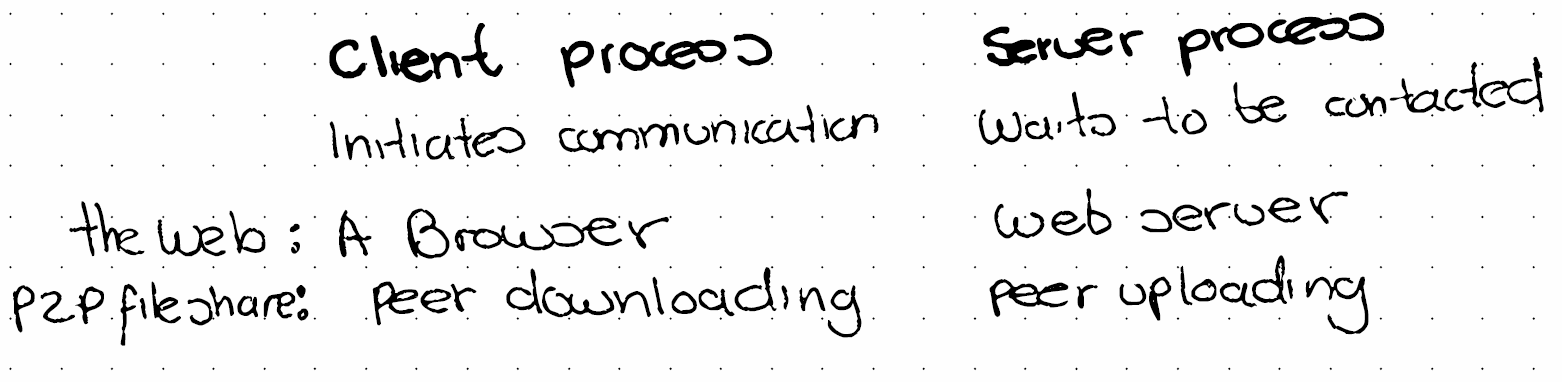 Client process Server process
Initiates communication Waits to be contacted
the web: A Browser web server
P2P file share: peer downloading peer uploading